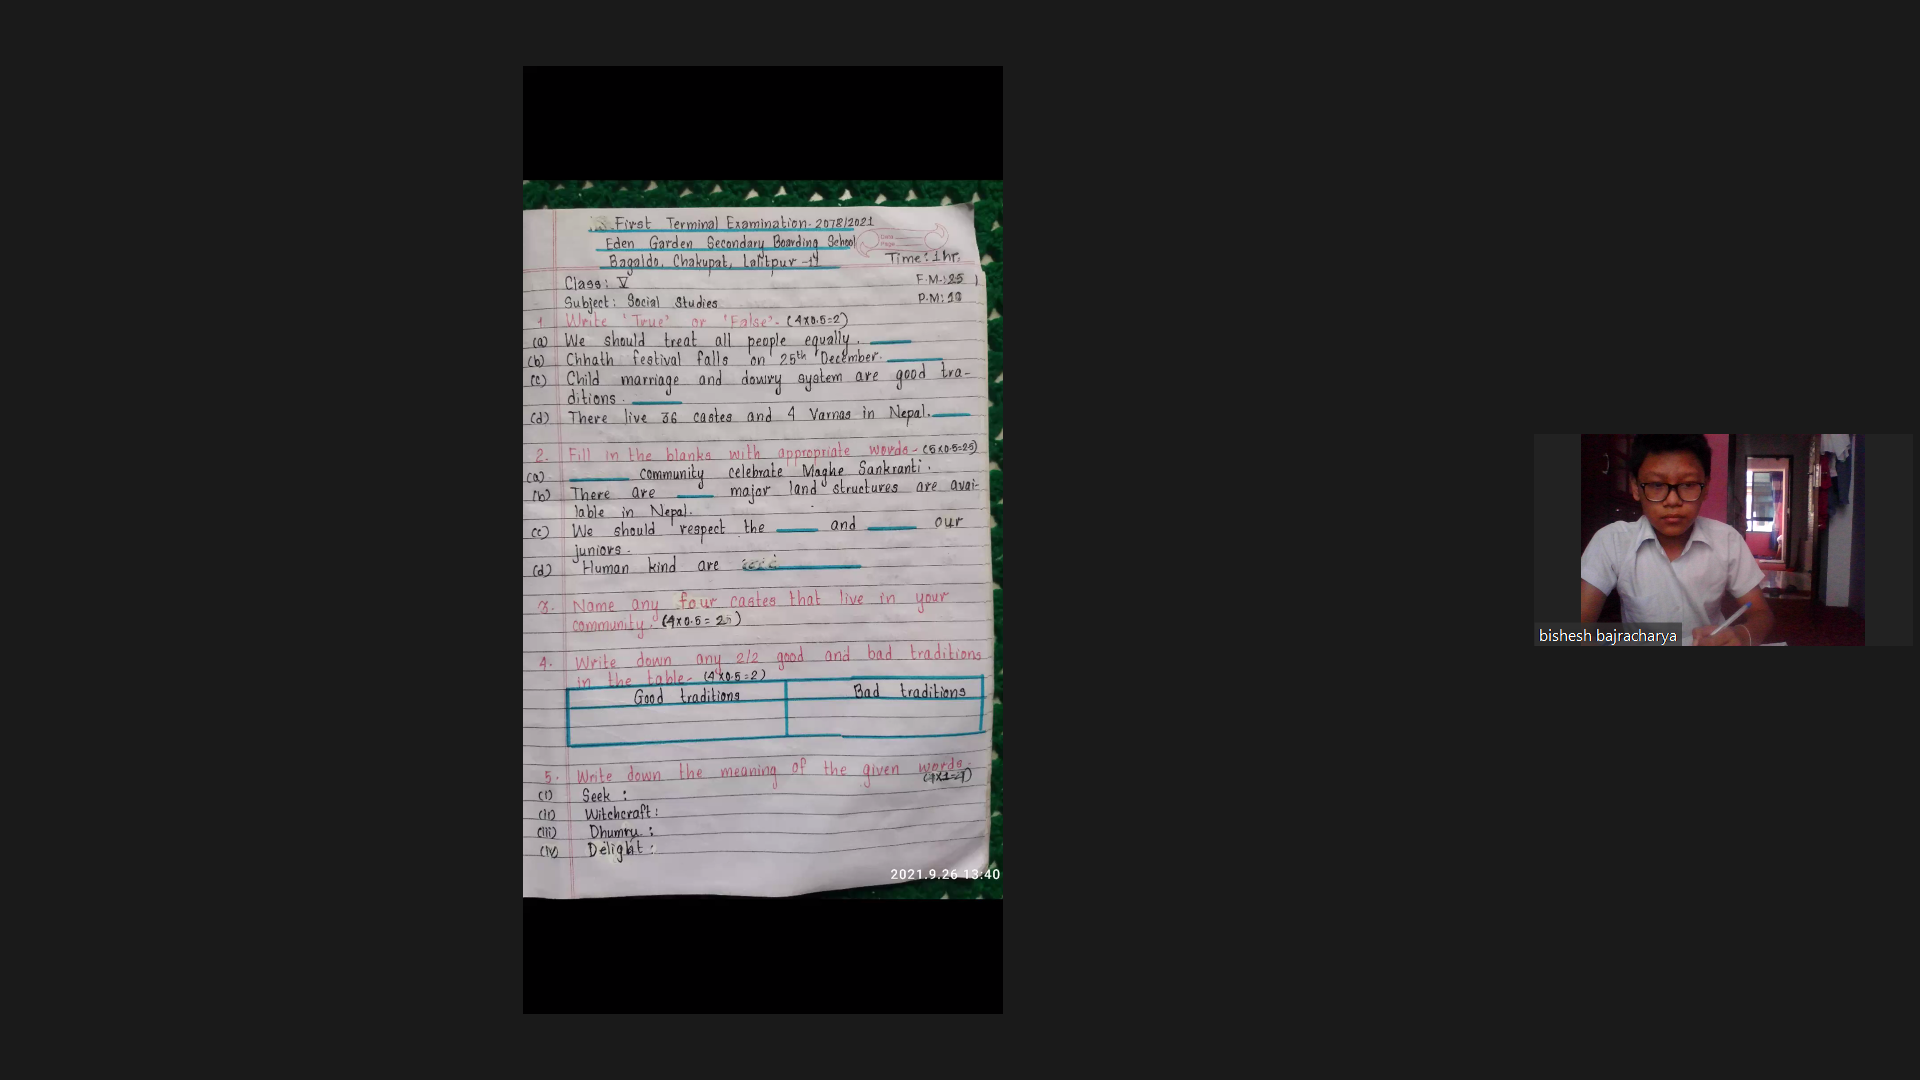 First Terminal Examination-2078/2021
Eden Garden Secondary Boarding School
Bagaldo, Chakupat, Lalitpur -17
Time: 1hr.
Class: V
F.M.: 25
Subject: Social Studies
P.M: 10
1. Write 'True' or 'False'- (4x0.5=2)
(a) We should treat all people equally.
(b) Chhath festival falls on 25th December.
(c) Child marriage and dowry system are good tra-
ditions.
(d) There live 36 castes and 4 Varnas in Nepal.
2. Fill in the blanks with appropriate words- (5x0.5=2.5)
(a) community celebrate Maghe Sankranti.
(b) There are major land structures are avai-
lable in Nepal.
(c) We should respect the and our
juniors.
(d) Human kind are
3. Name any four castes that live in your
community. (4x0.5=2)
4. Write down any 2/2 good and bad traditions
in the table- (4x0.5=2)
Good traditions Bad traditions
5. Write down the meaning of the given words.
(4x1=4)
(i) Seek :
(ii) Witchcraft:
(iii) Dhumru :
(iv) Delight :
2021.9.26 13:40
bishesh bajracharya